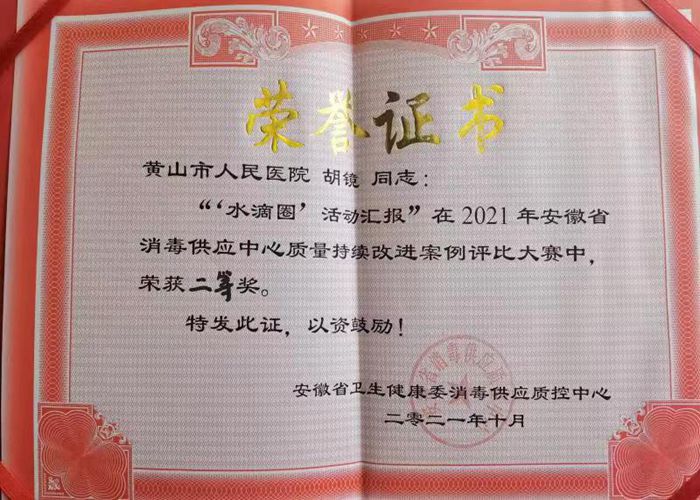 荣誉证书
黄山市人民医院 胡镜 同志：
“‘水滴圈’活动汇报”在2021年安徽省
消毒供应中心质量持续改进案例评比大赛中，
荣获二等奖。
特发此证，以资鼓励！
安徽省卫生健康委消毒供应质控中心
二〇二一年十月